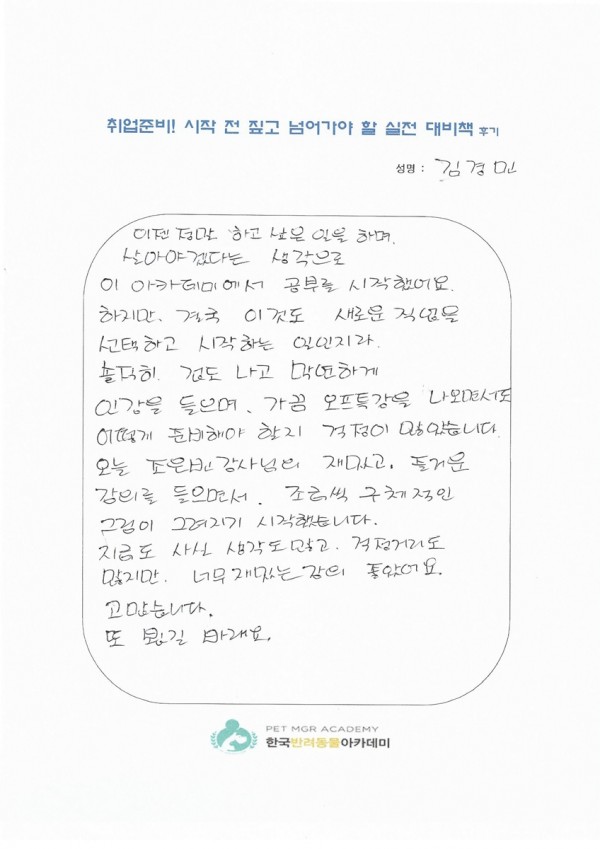 취업준비! 시작 전 짚고 넘어가야 할 실전 대비책 후기
성명 : 김경민
이젠 정말 하고 싶은 일을 하며,
살아야겠다는 생각으로
이 아카데미에서 공부를 시작했어요.
하지만, 결국 이것도 새로운 직업을
선택하고 시작하는 일인지라.
솔직히 겁도 나고 막연하게
인강을 들으며, 가끔 오프특강을 나오면서도
어떻게 준비해야 할지 걱정이 많았습니다.
오늘 조은빈강사님의 재밌고, 즐거운
강의를 들으면서, 조금씩 구체적인
그림이 그려지기 시작했습니다.
지금도 사실 생각도 많고, 걱정거리도
많지만, 너무 재밌는 강의 좋았어요.
고맙습니다.
또 뵙길 바래요.
PET MGR ACADEMY
한국반려동물아카데미